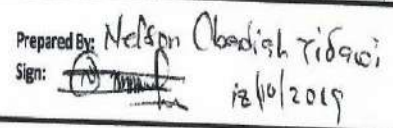 Prepared By: Nelson Obadiah
Sign:
12/10/2019